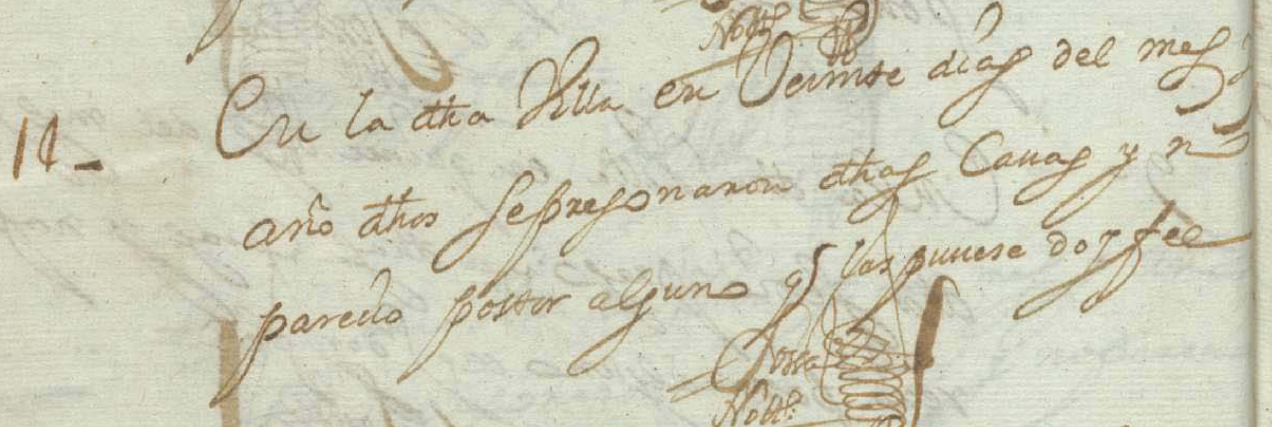 Nottº
En la dha Villa en Veinte dias del mes y
11-
año dhos se pregonaron dhas Casas y nº
pareciò postor alguno q las pusiese doy fee
Nottº